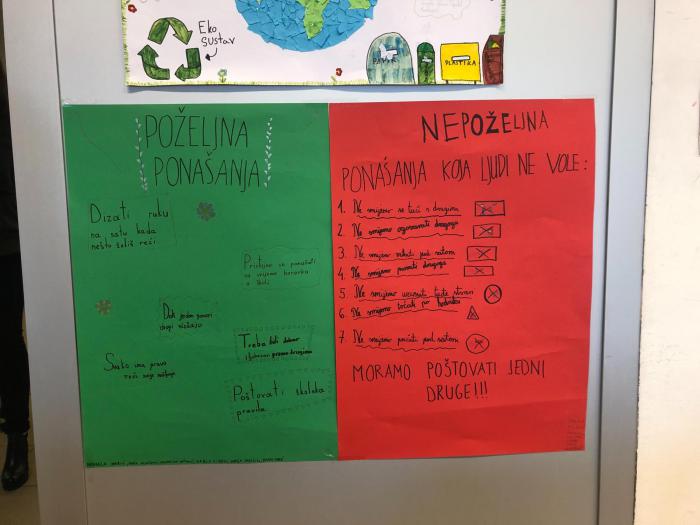 Eko
sustav
PAPIR
PLASTIKA
POŽELJNA
PONAŠANJA
Dizati ruku
na satu kada
nešto želiš reći
Pristojno se ponašati
za vrijeme boravka
u školi
Dok jedan govori
drugi slušaju
Treba biti dobar
i ljubazan prema drugima
Svako ima pravo
reći svoje mišljenje
Poštovati školska
pravila
NEPOŽELJNA
PONAŠANJA KOJA LJUDI NE VOLE:
1. Ne smijemo se tući s drugima
2. Ne smijemo ogovarati drugoga
3. Ne smijemo vikati pod satom
4. Ne smijemo psovati drugoga
5. Ne smijemo uzimati tuđe stvari
6. Ne smijemo trčati po hodniku
7. Ne smijemo pričati pod satom
MORAMO POŠTOVATI JEDNI
DRUGE!!!